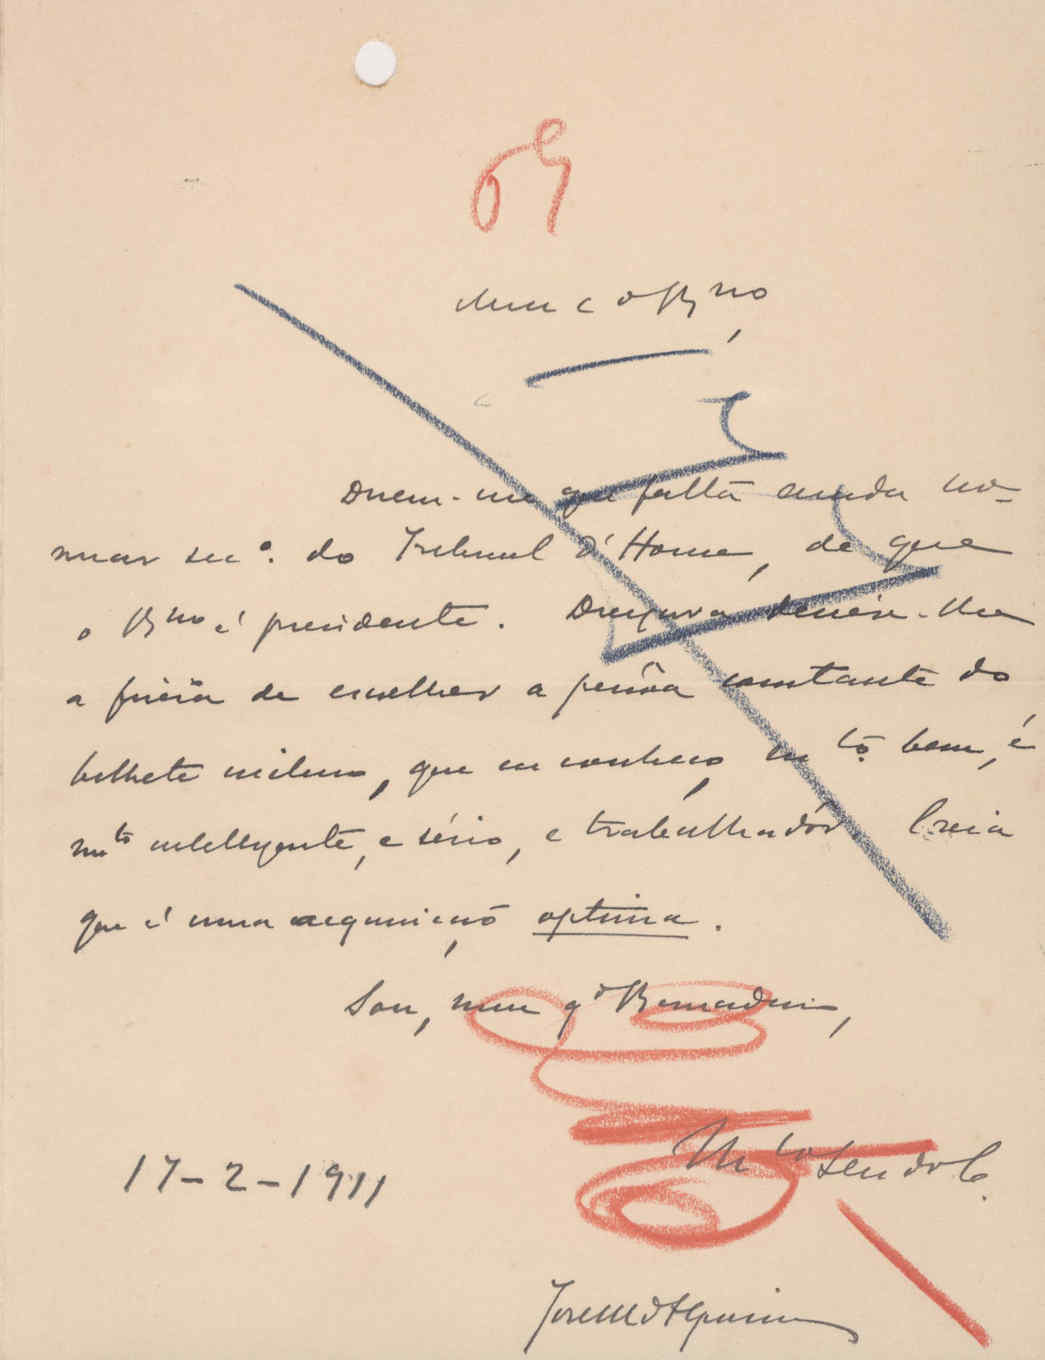 69
Meu c.º B.no,
Dizem-me que falta ainda no-
mear sec.º do Tribunal d'Honra, de que
o B.no é presidente. Desejava dever-lhe
a fineza de escolher a pessôa constante do
bilhete incluso, que eu conheço m.to bem, é
m.to intelligente, e sério, e trabalhadôr. Creia
que é uma acquisição optima.
Sou, meu q.do Bernardino,
M.to seu do C.
17-2-1911
José M. d'Alpoim